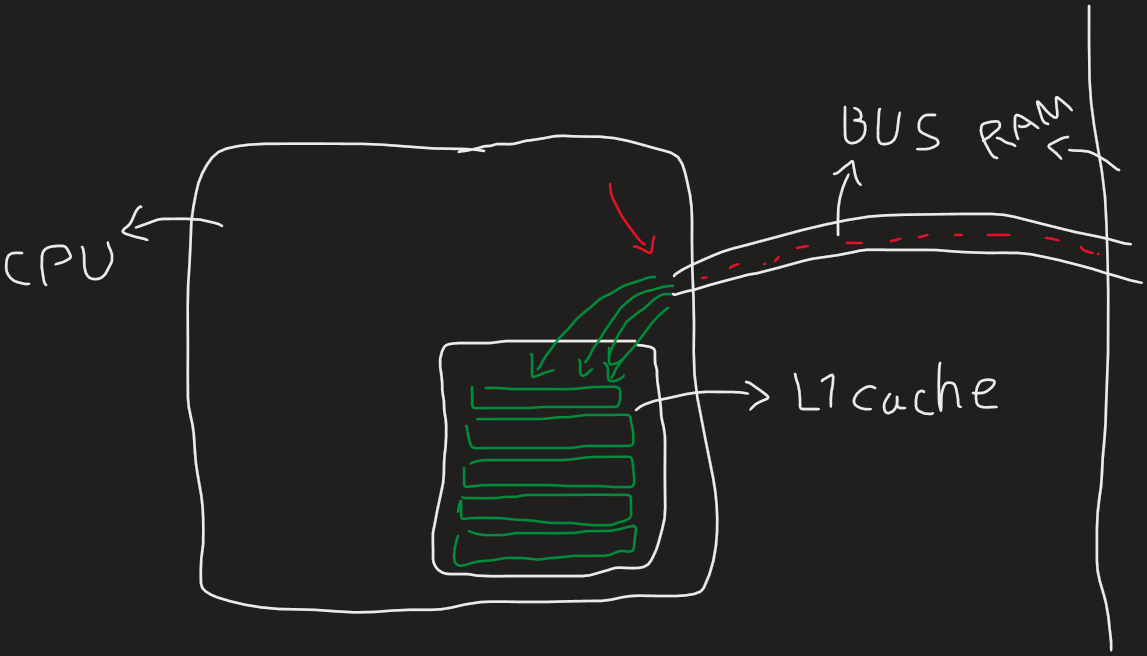 BUS
RAM
CPU
L1 cache